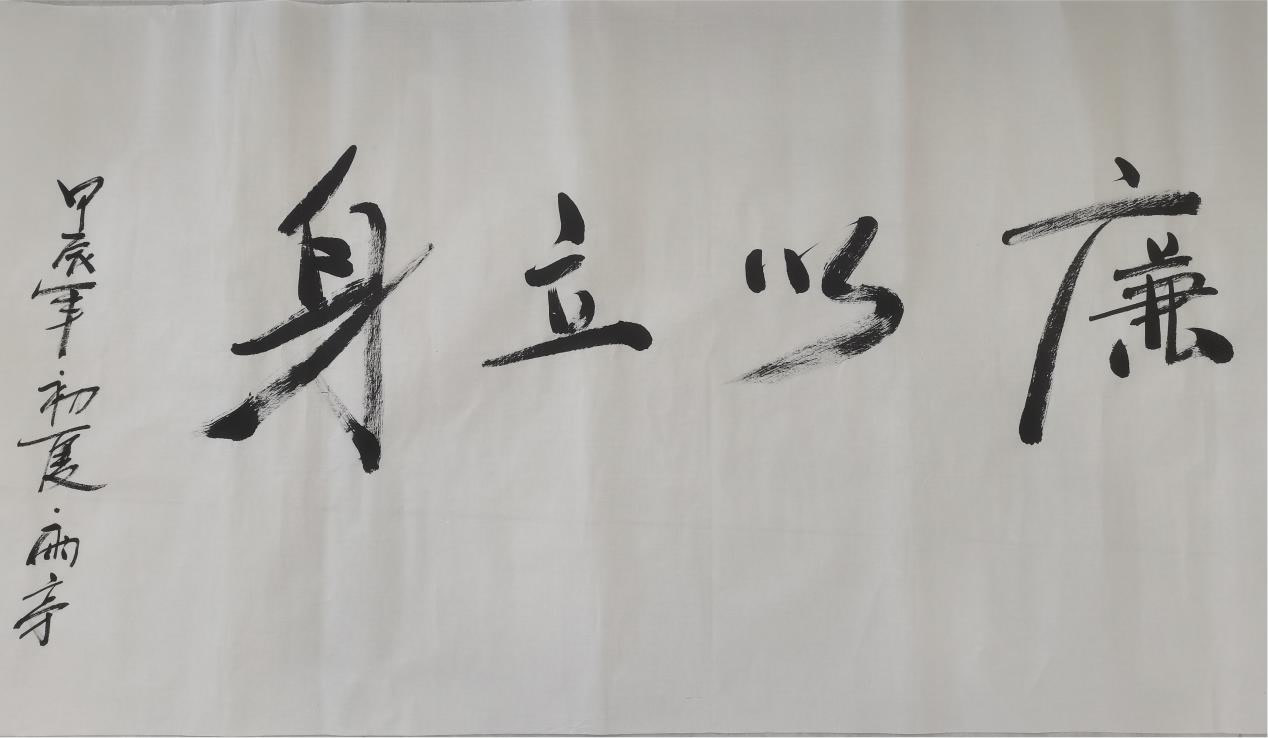 廉以立身
甲辰年初夏雨亭